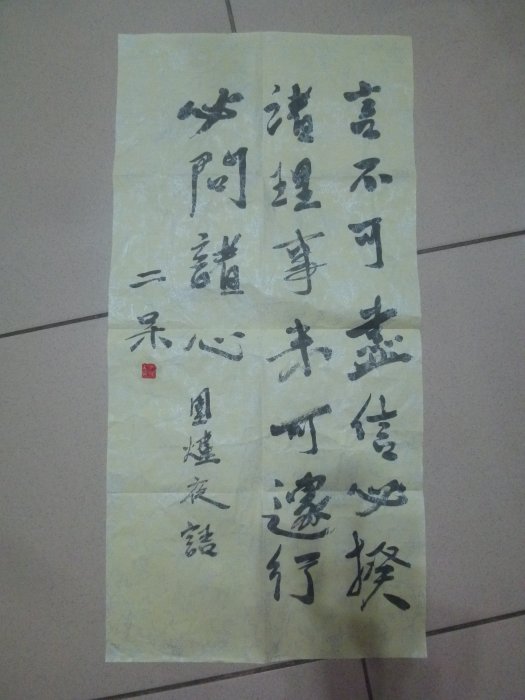 言不可盡信必揆
諸理事未可遽行
必問諸心 圍爐夜話
二呆